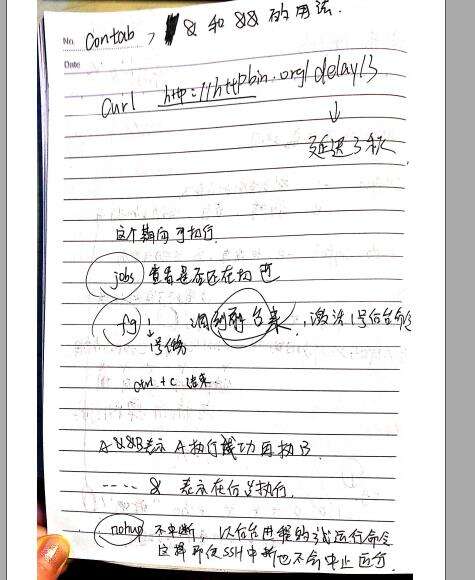 No. Contab, & 和 && 的用法.
Date
curl http://httpbin.org/delay/3
↓
延迟3秒
这个期间可执行
jobs 查看是否还在执行
fg 1 调到前台来, 激活1号后台命令
↓
1号任务
ctrl + c 结束
A && B表示 A执行成功再执B.
---- & 表示在后台执行.
nohup 不中断, 以后台进程的方式运行命令
这样即使SSH中断也不会中止运行.